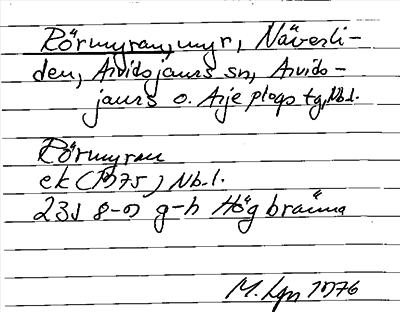 Rörmyran, myr, Näverli-
den, Arvidsjaurs sn, Arvids-
jaurs o. Arjeplogs tg, Nb.l.
Rörmyran
ek (1975) Nb.l.
23J 8-9 g-h Högbränna
M. Lgn 1976